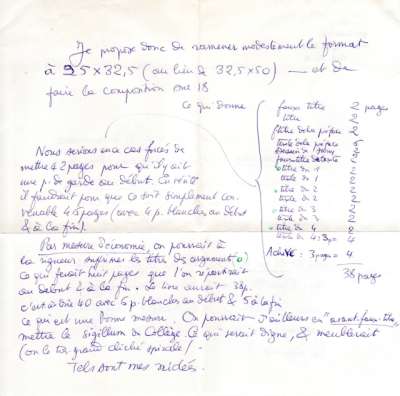 Je propose donc de ramener modestement le format
à 25 x 32,5 (au lieu de 32,5 x 50) — et de
faire la composition one 18
Ce qui donne
faux titre 2 pages
titre 2
titre de la préface 2
texte de la préface
faux titre de texte
titre du 1
texte du 1
titre du 2
texte du 2
titre du 3
texte du 3
titre du 4
texte du 4 : 3 p. 4
Achevé : 3 pages = 4
38 pages
Nous serions en ce cas forcés de
mettre 42 pages pour qu'il y ait
une p. de garde au début. En vérité
il faudrait pour que ce soit simplement con
venable 45 pages (avec 4 p. blanches au début
& à la fin).
Par mesure d'économie, on pourrait à
la rigueur supprimer les titres de
Ce qui ferait huit pages que l'on répartirait
au début & à la fin. Le livre aurait 38 p.
c'est à dire 40 avec 6 p. blanches au début & 5 à la fin
ce qui est une bonne mesure. On pourrait d'ailleurs en "avant-faux-titre"
mettre le sigillum du Collège Ce qui serait digne, & meublerait
(on le très grand cliché spirale).
Tels sont mes idées.